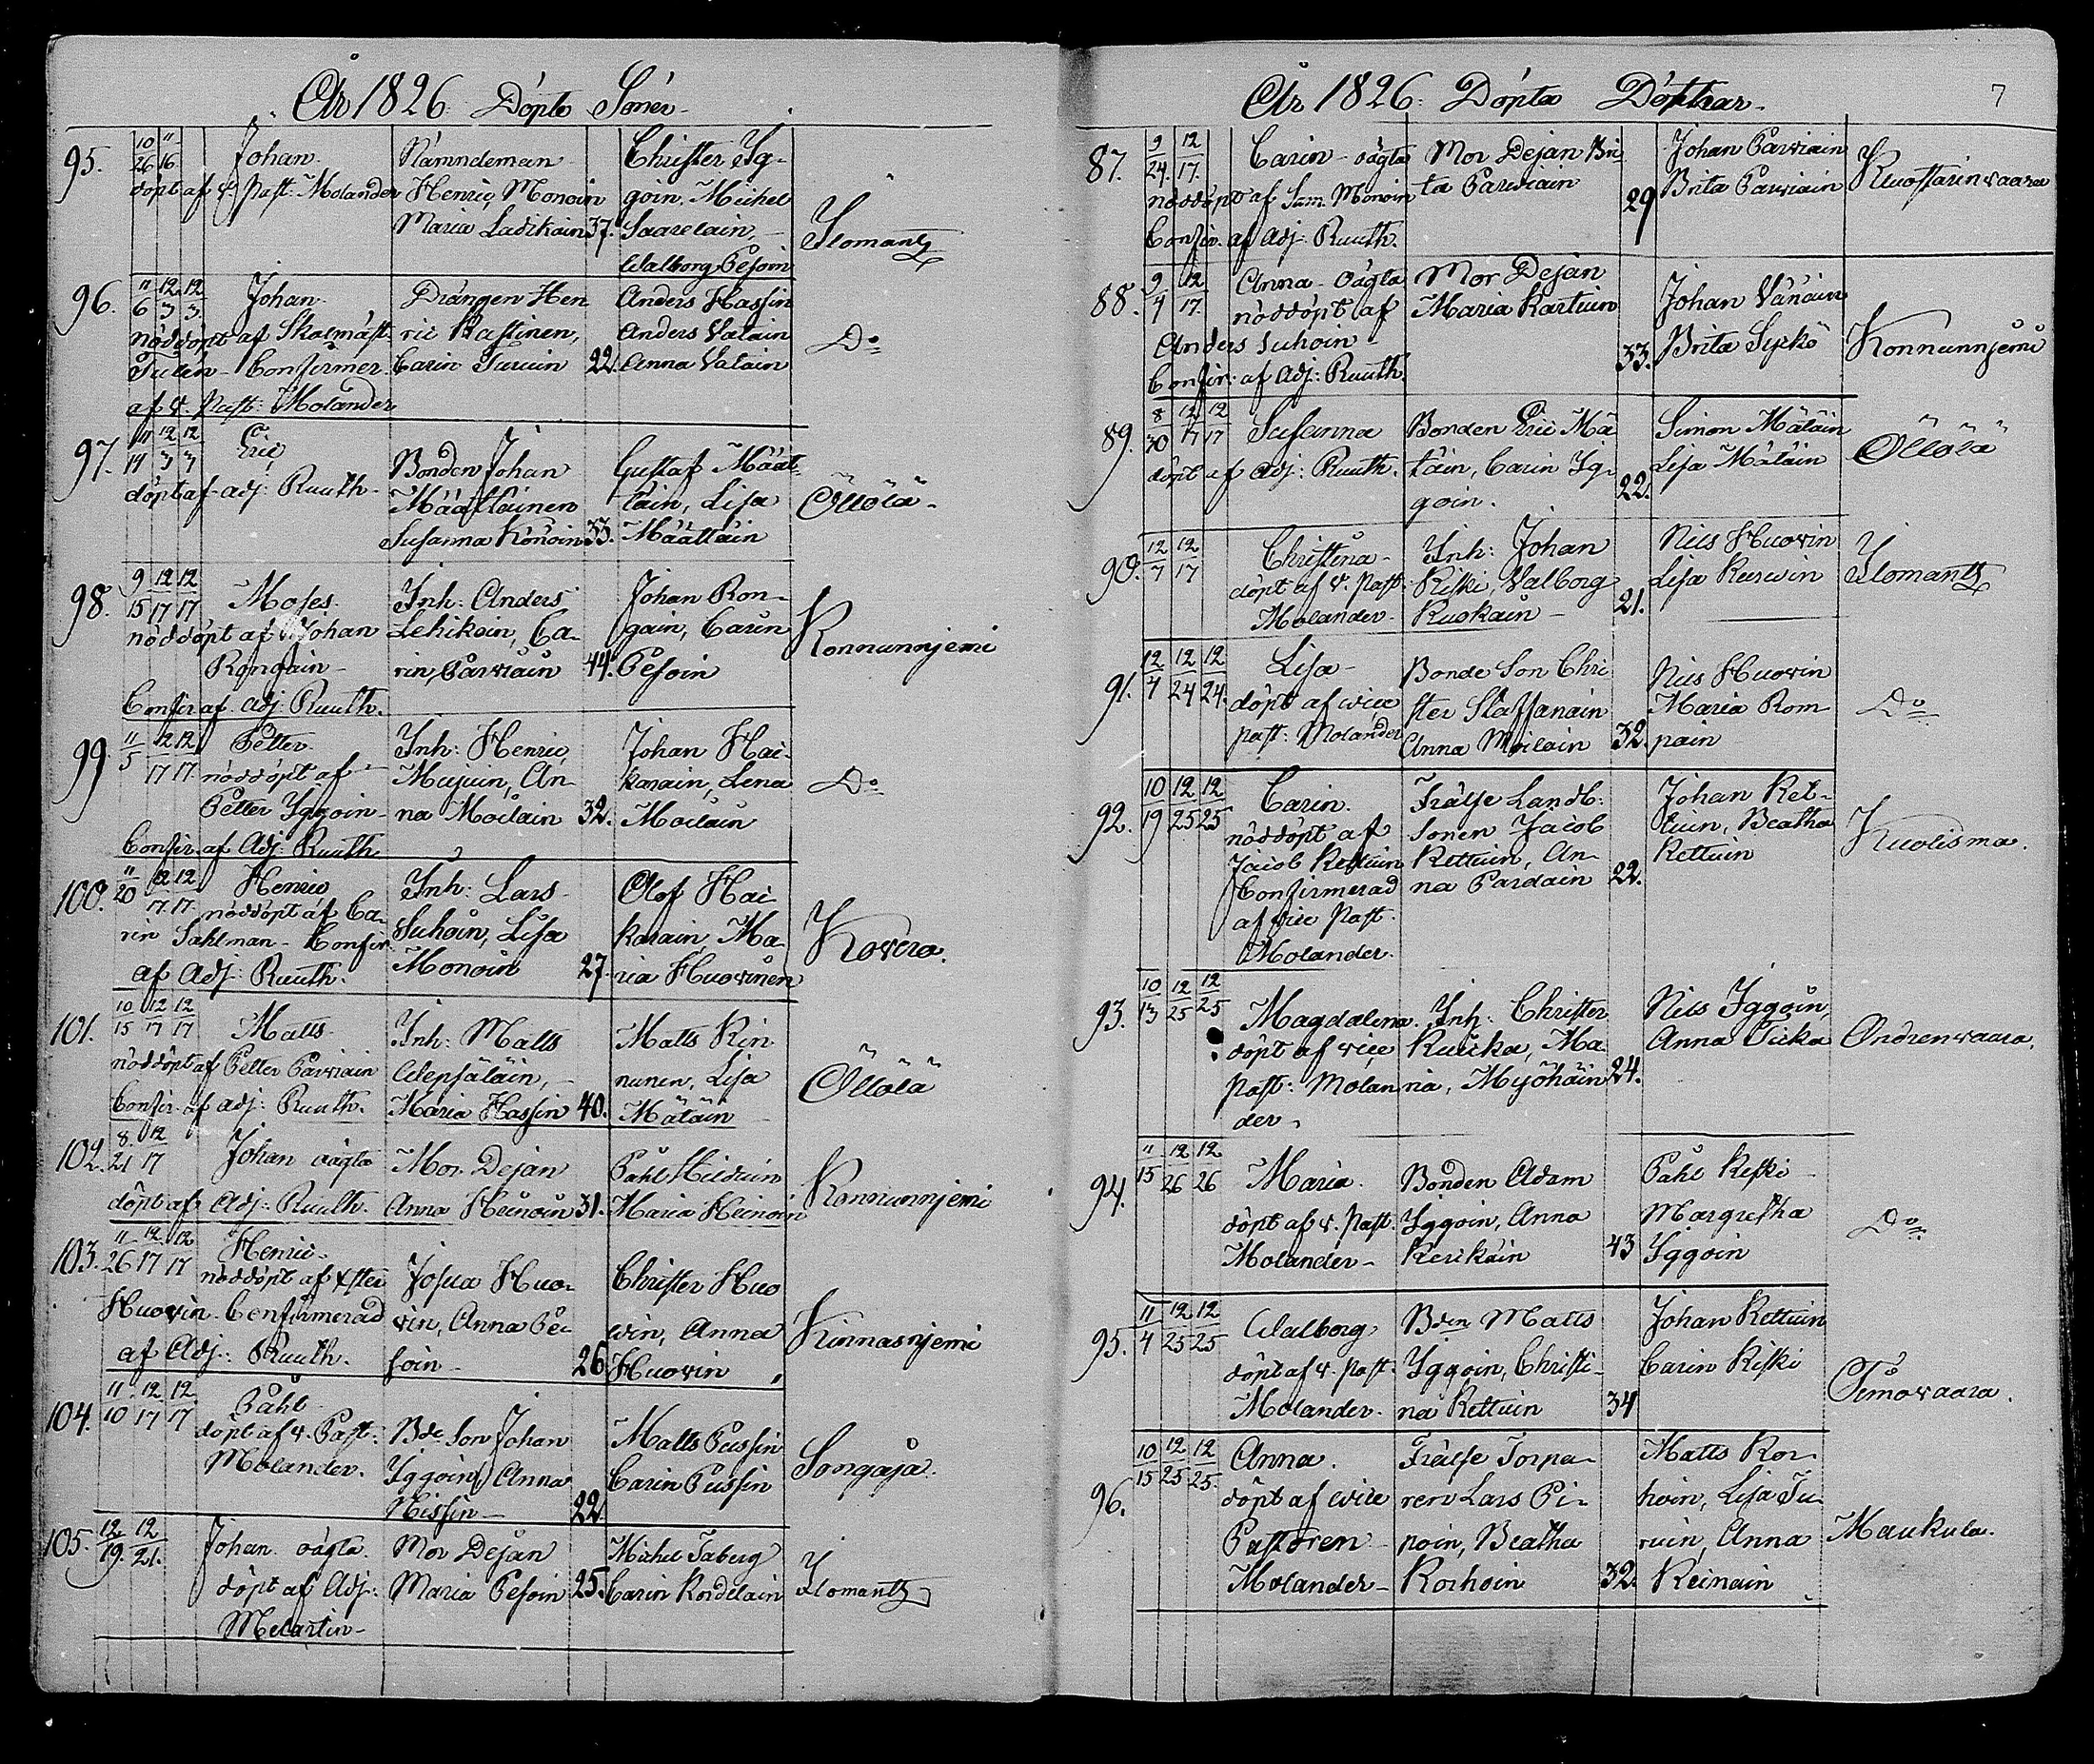 År 1826. Döpte Söner
95.
10/26 11/16
Johan
döpt af v. Past: Molander
Nämndeman
Henric Monoin
Maria Ladikain 37.
Christer Yg-
goin, Michel
Saarelain,
Walborg Pesoin
Ilomantz
96.
11/6 12/3 12/3
Johan
nöddöpt af Skolmäst.
Tulén Confirmer.
af v. Past: Molander
Drängen Hen
ric Rastinen,
Carin Turuin 22.
Anders Hassin
Anders Vatain
Anna Vatain
Do
97.
11/14 12/3 12/3
Eric
döpt af adj: Ruuth
Bonden Johan
Määttäinen
Susanna Könöin 33.
Gustaf Määt-
täin, Lisa
Määttäin
Öllölä
98.
9/15 12/17 12/17
Moses
nöddöpt af Johan
Rongain
Confir. af Adj: Ruuth.
Inh: Anders
Lehikoin, Ca-
rin Parviain 44.
Johan Ron-
gain, Carin
Pesoin
Konnunnjemi
99.
11/5 12/17 12/17
Petter
nöddöpt af
Petter Yggoin
Confir. af Adj: Ruuth
Inh: Henric
Mujuin, An-
na Moilain 32.
Johan Hai-
karain, Lena
Moilain
Do
100.
11/20 12/17 12/17
Henric
nöddöpt af Ca-
rin Sahlman Confir.
af Adj: Ruuth.
Inh: Lars
Suhoin, Lisa
Monoin 27.
Olof Hai-
karain, Ma-
ria Huovinen
Kovero.
101.
10/15 12/17 12/17
Matts
nöddöpt af Petter Parviain
Confir. af adj: Ruuth.
Inh: Matts
Wepsäläin,
Maria Hassin 40.
Matts Kin
nunen, Lisa
Mätäin
Öllölä
102.
8/21 12/17
Johan oägta
döpt af Adj: Ruuth.
Mor. Dejan
Anna Heinoin 31.
Påhl Hilduin
Maria Heinoin
Konnunnjemi
103.
11/26 12/17 12/17
Henric
nöddöpt af Xster
Huovin Confirmerad
af Adj: Ruuth.
Josua Huo-
vin, Anna Pe-
soin 26
Christer Huo
vin, Anna
Huovin
Kinnasnjemi
104.
11/10 12/17 12/17
Påhl
döpt af v. Past:
Molander.
Bde Son Johan
Yggoin, Anna
Nissin 22.
Matts Pussin
Carin Pussin
Songaja.
105.
12/19. 12/21.
Johan oägta
döpt af Adj:
Melartin
Mor Dejan
Maria Pesoin 25.
Michel Taberg
Carin Kordelain
Ilomantz
År 1826. Döpta Döttrar
7
87.
9/24. 12/17.
Carin oägta
nöddöpt af Sam. Monoin
Confir. af Adj: Ruuth.
Mor Dejan Bri
ta Parviain 29
Johan Parviain
Brita Parviain
Kuottarinvaara
88.
9/4 12/17
Anna oägta
nöddöpt af
Anders Suhoin
Confir: af Adj: Ruuth.
Mor Dejan
Maria Kartuin 33.
Johan Vänäin
Brita Syrkö
Konnunnjemi
89.
8/30 12/17 12/17
Susanna
döpt af Adj: Ruuth.
Bonden Eric Mä
täin, Carin Yg-
goin. 22.
Simon Mätäin
Lisa Mätäin
Öllölä
90.
12/7 12/17
Christina
döpt af v. Past:
Molander
Inh: Johan
Riski, Valborg
Kuokain 21.
Nils Huovin
Lisa Kurwin
Ilomantz
91.
12/4 12/24 12/24.
Lisa
döpt af vice
past: Molander
Bonde Son Chri
ster Staffanain
Anna Moilain 32.
Nils Huovin
Maria Rom-
pain
Do
92.
10/19 12/25 12/25
Carin.
nöddöpt af
Jacob Rettuin
Confirmerad
af vice Past.
Molander.
Frälse Landb:
sonen Jacob
Rettuin, An-
na Pardain 22.
Johan Ret-
tuin, Beatha
Rettuin
Kuolisma.
93.
10/13 12/25 12/25
Magdalena
döpt af vice
Past: Molan
der.
Inh: Christer
Kuicka, Ma-
ria, Myöhäin 24.
Nils Yggoin,
Anna Sicka
Ondrenvaara.
94.
11/15 12/26 12/26
Maria.
döpt af v. Past.
Molander
Bonden Adam
Yggoin, Anna
Kerikäin 43
Påhl Riski
Margretha
Yggoin
Do
95.
11/4 12/25 12/25
Walborg
döpt af v. Past:
Molander.
Bden Matts
Yggoin, Christi-
na Rettuin 34
Johan Rettuin
Carin Riski
Oinovaara.
96.
10/15 12/25 12/25.
Anna.
döpt af vice
Pastoren
Molander
Frälse Torpa-
ren Lars Pi-
poin, Beatha
Korhoin 32.
Matts Kor-
hoin, Lisa Tu-
ruin, Anna
Keinain
Maukula.